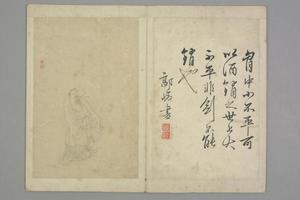 胷中小不平可
以酒銷之世間大
不平非劍不能
銷也
書